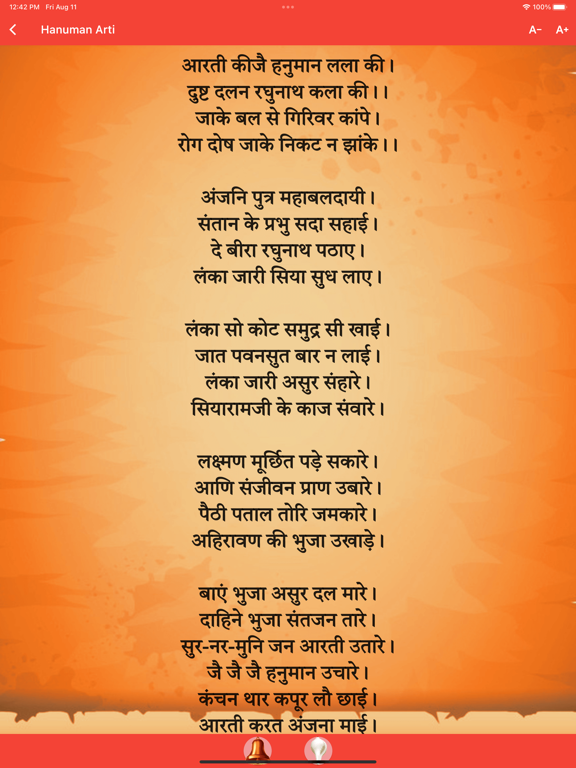 12:42 PM Fri Aug 11
100%
Hanuman Arti
A- A+
आरती कीजै हनुमान लला की।
दुष्ट दलन रघुनाथ कला की।।
जाके बल से गिरिवर कांपे।
रोग दोष जाके निकट न झांके।।
अंजनि पुत्र महाबलदायी।
संतान के प्रभु सदा सहाई।
दे बीरा रघुनाथ पठाए।
लंका जारी सिया सुध लाए।
लंका सो कोट समुद्र सी खाई।
जात पवनसुत बार न लाई।
लंका जारी असुर संहारे।
सियारामजी के काज संवारे।
लक्ष्मण मूर्छित पड़े सकारे।
आणि संजीवन प्राण उबारे।
पैठी पताल तोरि जमकारे।
अहिरावण की भुजा उखाड़े।
बाएं भुजा असुर दल मारे।
दाहिने भुजा संतजन तारे।
सुर-नर-मुनि जन आरती उतारे।
जै जै जै हनुमान उचारे।
कंचन थार कपूर लौ छाई।
आरती करत अंजना माई।